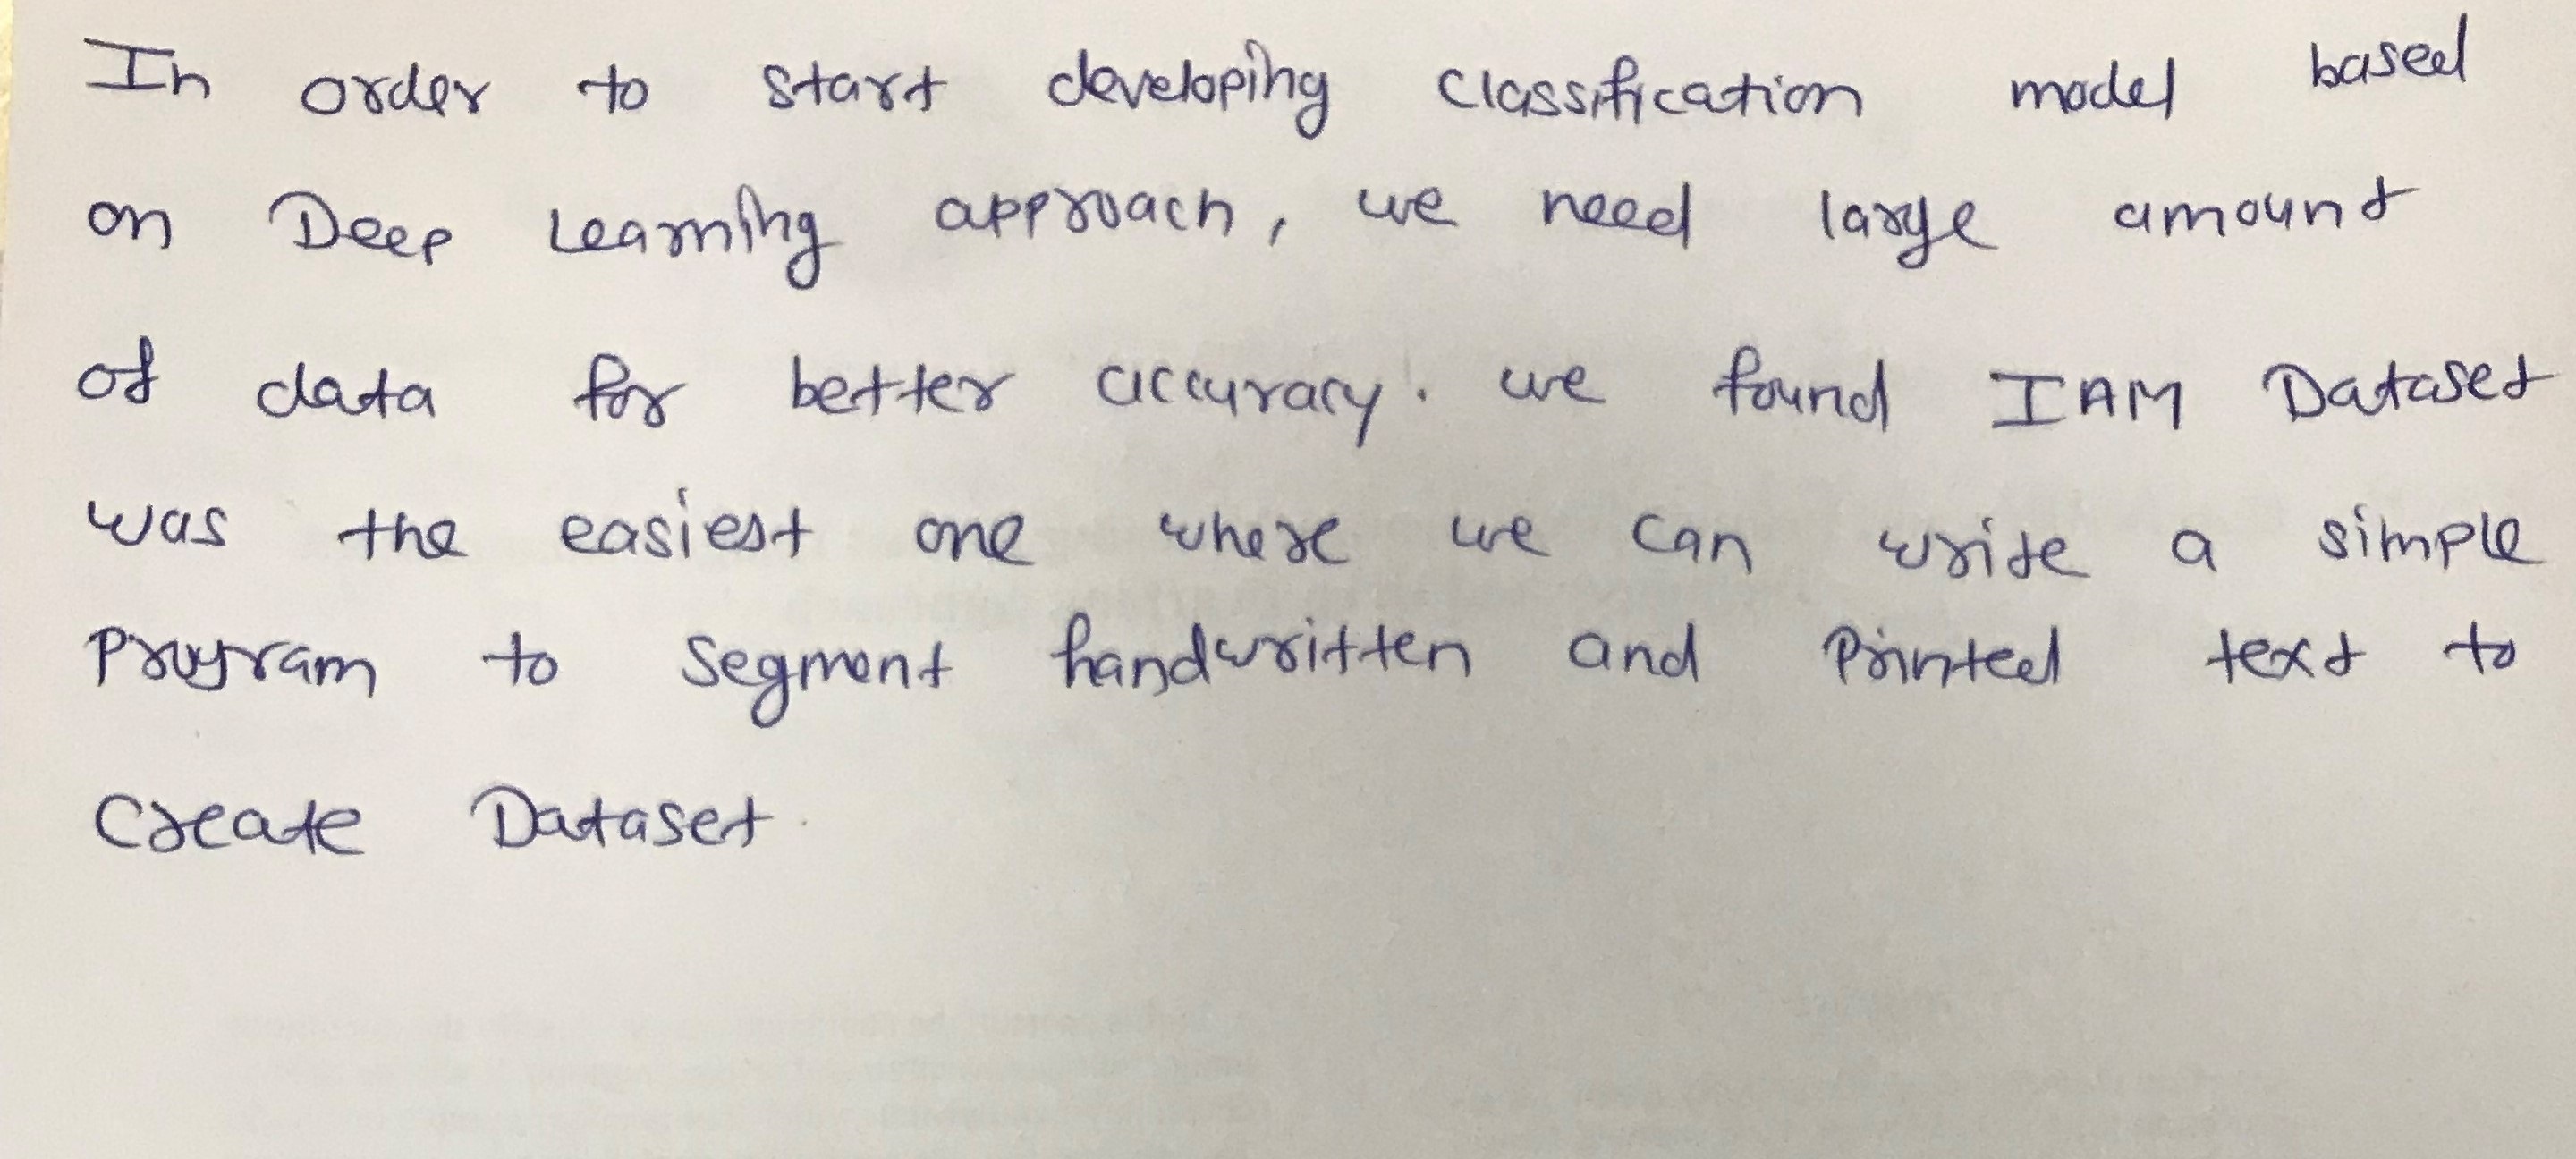 In order to start developing classification model based
on Deep Learning approach, we need large amount
of data for better accuracy. we found IAM Dataset
was the easiest one where we can write a simple
Program to segment handwritten and Printed text to
Create Dataset.